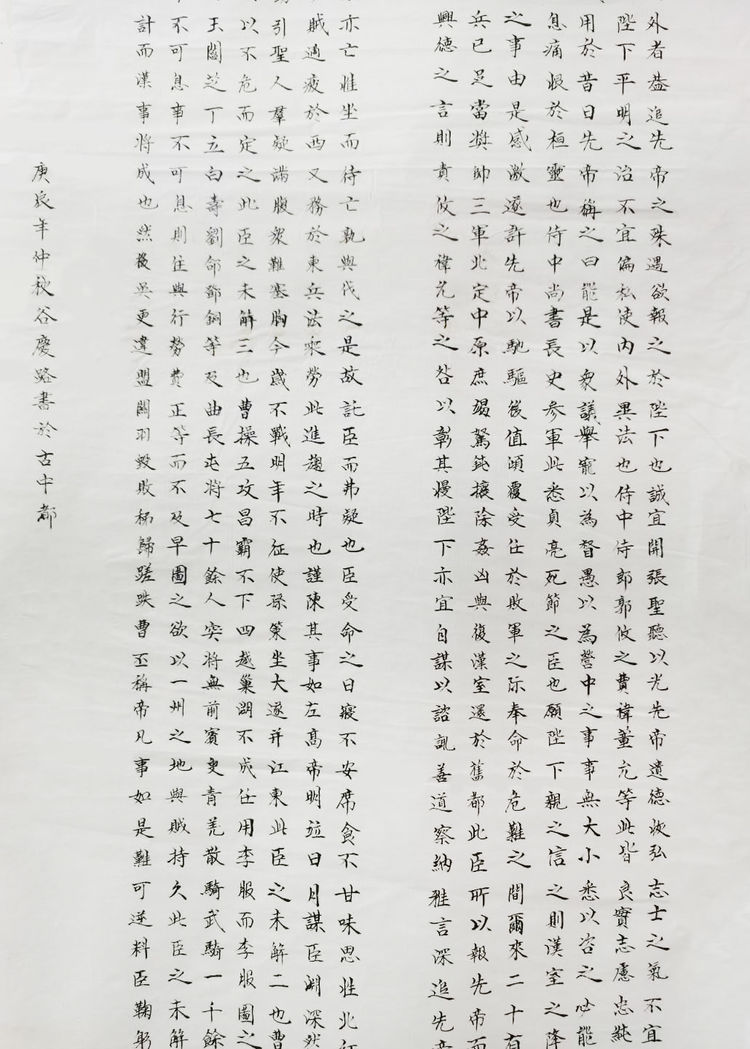 外者蓋追先帝之殊遇欲報之於陛下也誠宜開張聖聽以光先帝遺德恢弘志士之氣不宜
陛下平明之治不宜偏私使內外異法也侍中侍郎郭攸之費禕董允等此皆良實志慮忠純
用於昔日先帝稱之曰能是以衆議舉寵以為督愚以為營中之事事無大小悉以咨之必能
息痛恨於桓靈也侍中尚書長史參軍此悉貞亮死節之臣也願陛下親之信之則漢室之隆
之事由是感激遂許先帝以馳驅後值傾覆受任於敗軍之際奉命於危難之間爾來二十有
兵已足當獎帥三軍北定中原庶竭駑鈍攘除姦凶興復漢室還於舊都此臣所以報先帝而
興德之言則責攸之禕允等之咎以彰其慢陛下亦宜自謀以諮諏善道察納雅言深追先帝
亦亡惟坐而待亡孰與伐之是故託臣而弗疑也臣受命之日寢不安席食不甘味思惟北征
賊適疲於西又務於東兵法乘勞此進趨之時也謹陳其事如左高帝明並日月謀臣淵深然
動引聖人羣疑滿腹衆難塞胸今歲不戰明年不征使孫策坐大遂并江東此臣之未解二也曹
以不危而定之此臣之未解三也曹操五攻昌霸不下四越巢湖不成任用李服而李服圖之
王閻芝丁立白壽劉郃鄧銅等及曲長屯將七十餘人突將無前賨叟青羌散騎武騎一千餘
不可息事不可息則住與行勞費正等而不及早圖之欲以一州之地與賊持久此臣之未解
計而漢事將成也然後吳更違盟關羽毀敗秭歸蹉跌曹丕稱帝凡事如是難可逆料臣鞠躬
庚辰年仲秋谷慶路書於古中都